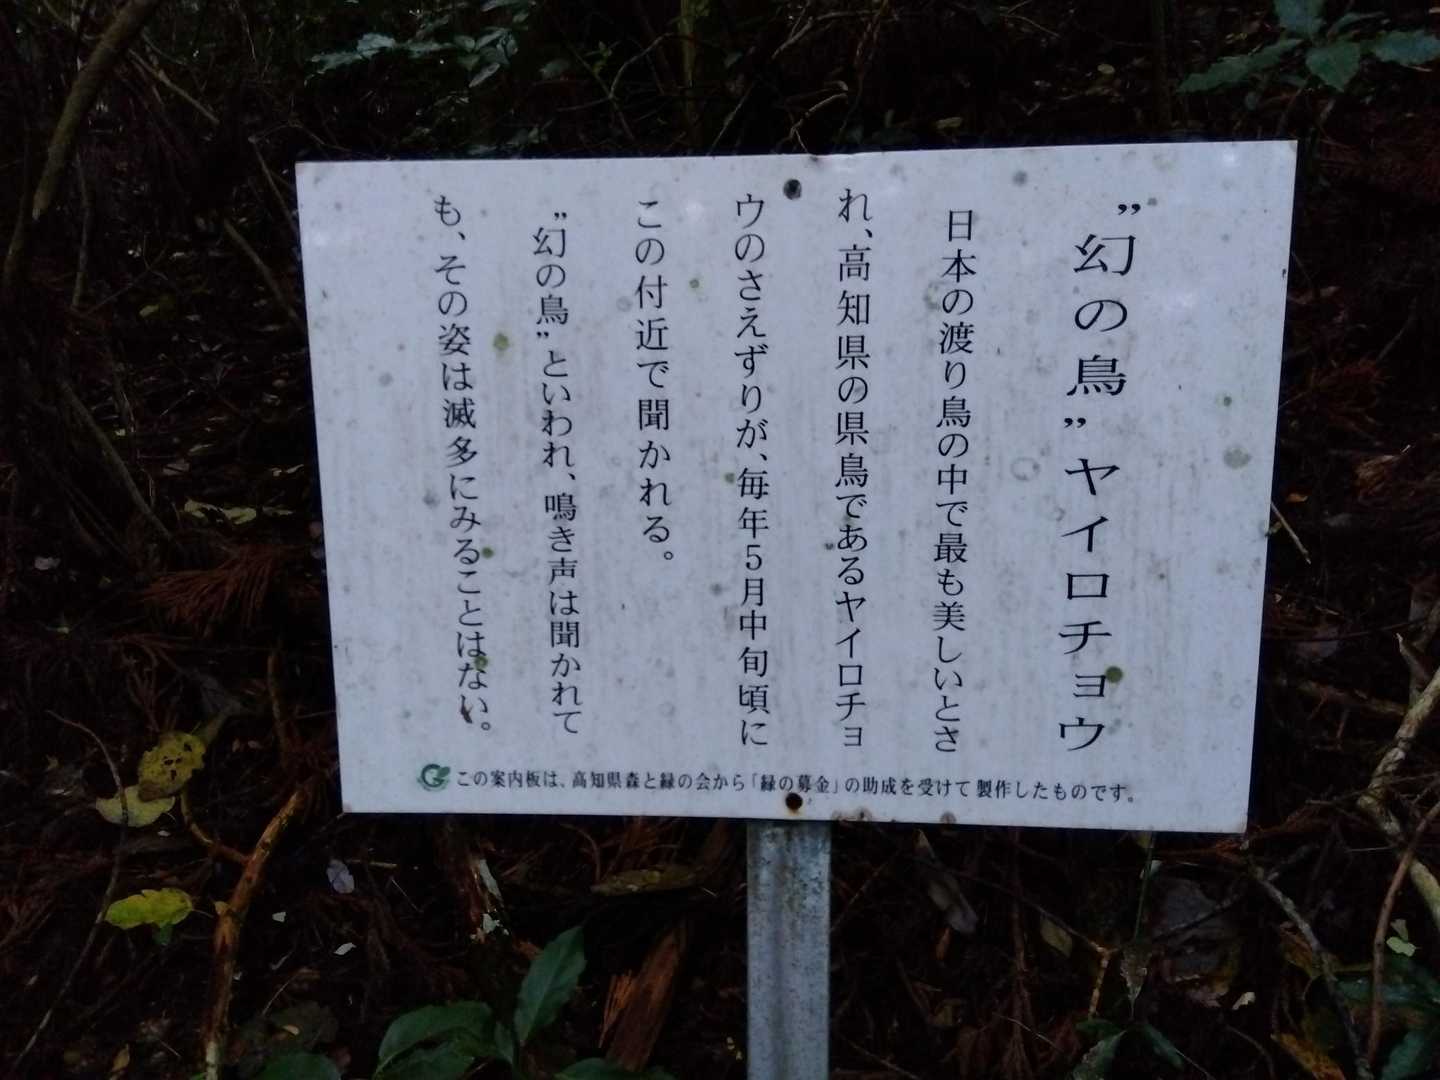 ”幻の鳥” ヤイロチョウ
日本の渡り鳥の中で最も美しいとさ
れ、高知県の県鳥であるヤイロチョ
ウのさえずりが、毎年5月中旬頃に
この付近で聞かれる。
”幻の鳥”といわれ、鳴き声は聞かれて
も、その姿は滅多にみることはない。
この案内板は、高知県森と緑の会から「緑の募金」の助成を受けて製作したものです。